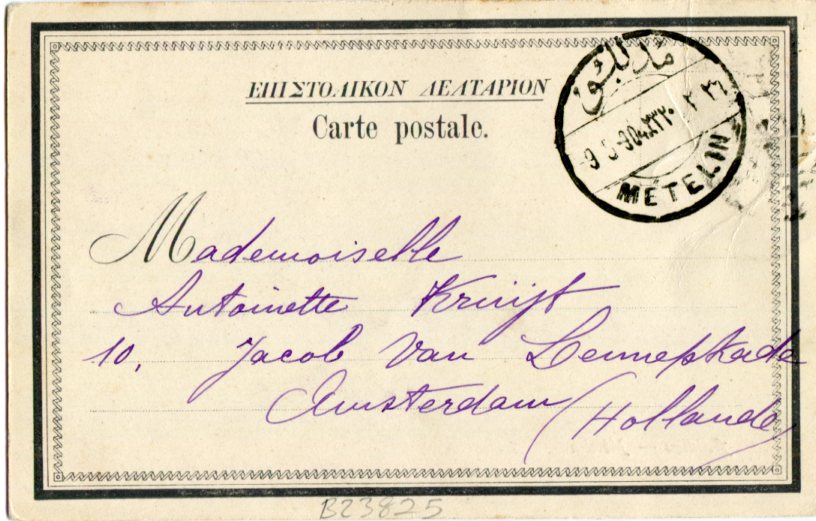 ΕΠΙΣΤΟΛΙΚΟΝ ΔΕΛΤΑΡΙΟΝ
Carte postale.
METELIN
Mademoiselle
Antoinette Kruijt
10, Jacob Van Lennepkade
Amsterdam (Hollande)
B23825